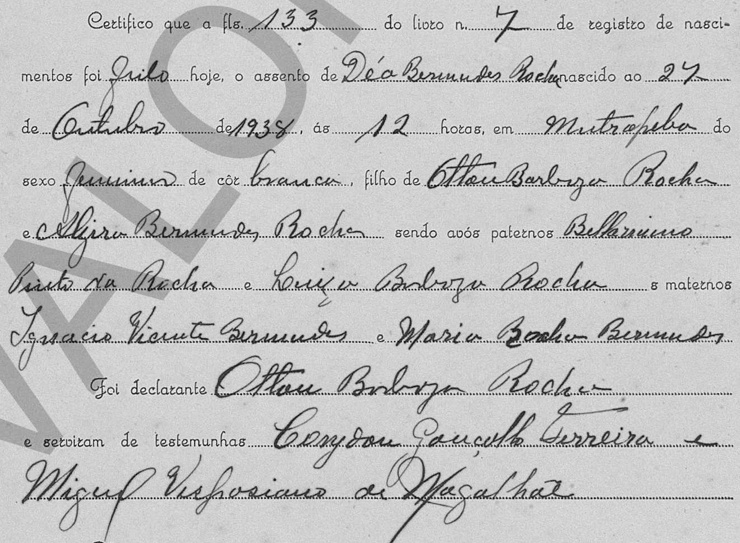 Certifico que a fls. 133 do livro n. 7 de registro de nasci-
mentos foi feito hoje, o assento de Déa Bermudes Rocha nascido ao 27
de Outubro de 1938, ás 12 horas, em Mutrapeba do
sexo feminino de côr branca, filho de Ottou Barboza Rocha
e Alzira Bermudes Rocha sendo avós paternos Bellarmino
Pinto da Rocha e Luiza Barboza Rocha e maternos
Ignacio Vicente Bermudes e Maria Rocha Bermudes
Foi declarante Ottou Barboza Rocha
e serviram de testemunhas Corydou Gonçalls Ferreira e
Miguel Vespasiano de Magalhãe
VALOR